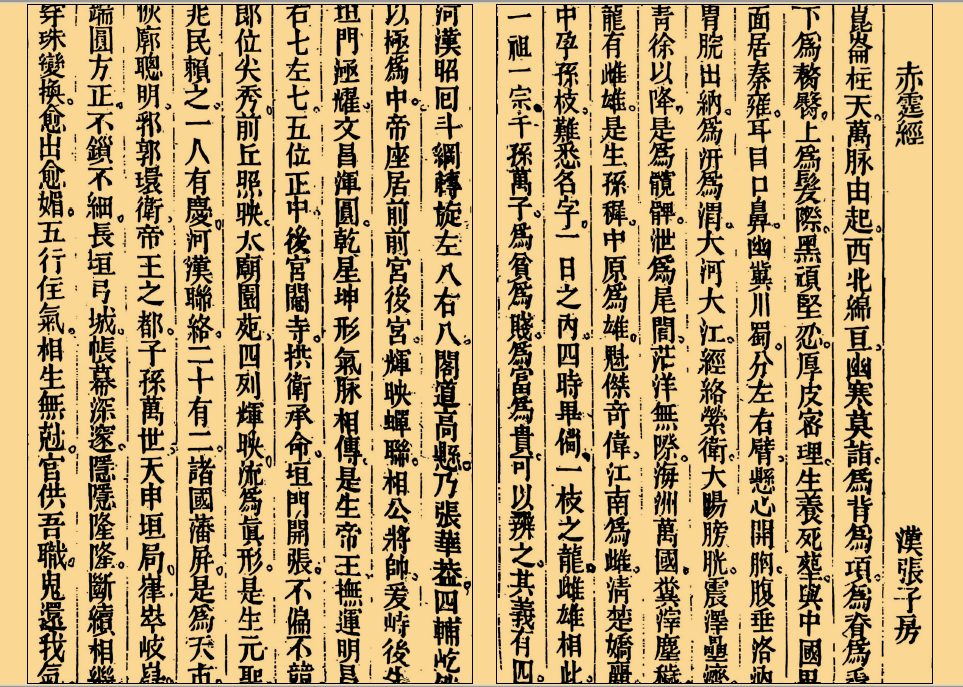 赤霆經　漢張子房
崑崙柱天萬脉由起。西北綿亘。幽寒莫詣。爲背爲項。爲脊爲
下。爲臀。上爲髮際。黑頑堅忍。厚皮密理。生養死塟。與中國
面居秦雍。耳目口鼻。幽冀川蜀。分左右臂。懸心開胸。腹垂洛
胃脘出納。爲汧爲渭。大河大江。經絡榮衛。大腸膀胱。震澤
青徐以降。是爲髖髀。泄爲尾閭。茫洋無際。海洲萬國。糞滓塵穢。
龍有雌雄。是生孫穉。中原爲雄。魁傑奇偉。江南爲雌。清楚嬌麗
中孕孫枝。難悉各字。一日之丙。四時畢備。一枝之龍。雌雄相此
一祖一宗。千孫萬子。爲貧爲賤。爲富爲貴。可以辨之。其義有四。
河漢昭回。斗綱轉旋。左八右八。閣道高懸。乃張華盖。四輔屹
以極爲中。帝座居前。前宮後宮。輝映蟬聯。相公將帥。爰峙後先
垣門極耀。文昌渾圓。乾星坤形。氣脉相傳。是生帝王。撫運明昌
右七左七。五位正中。後宮閽寺。拱衛承命。垣門開張。不偏不
郎位尖秀。前丘照映。太廟園苑。四列輝映。流爲眞形。是生元聖
兆民賴之。一人有慶。河漢聯絡。二十有二。諸國藩屏。是爲天市
恢廓聰明。郛郭環衛。帝王之都。子孫萬世。天申垣局。嵂崒岐
端圓方正。不鎖不細。長垣弓城。帳幕深邃。隱隱隆隆。斷續相繼
穿珠變換。愈出愈媚。五行任氣。相生無尅。官供吾職。鬼還我氣